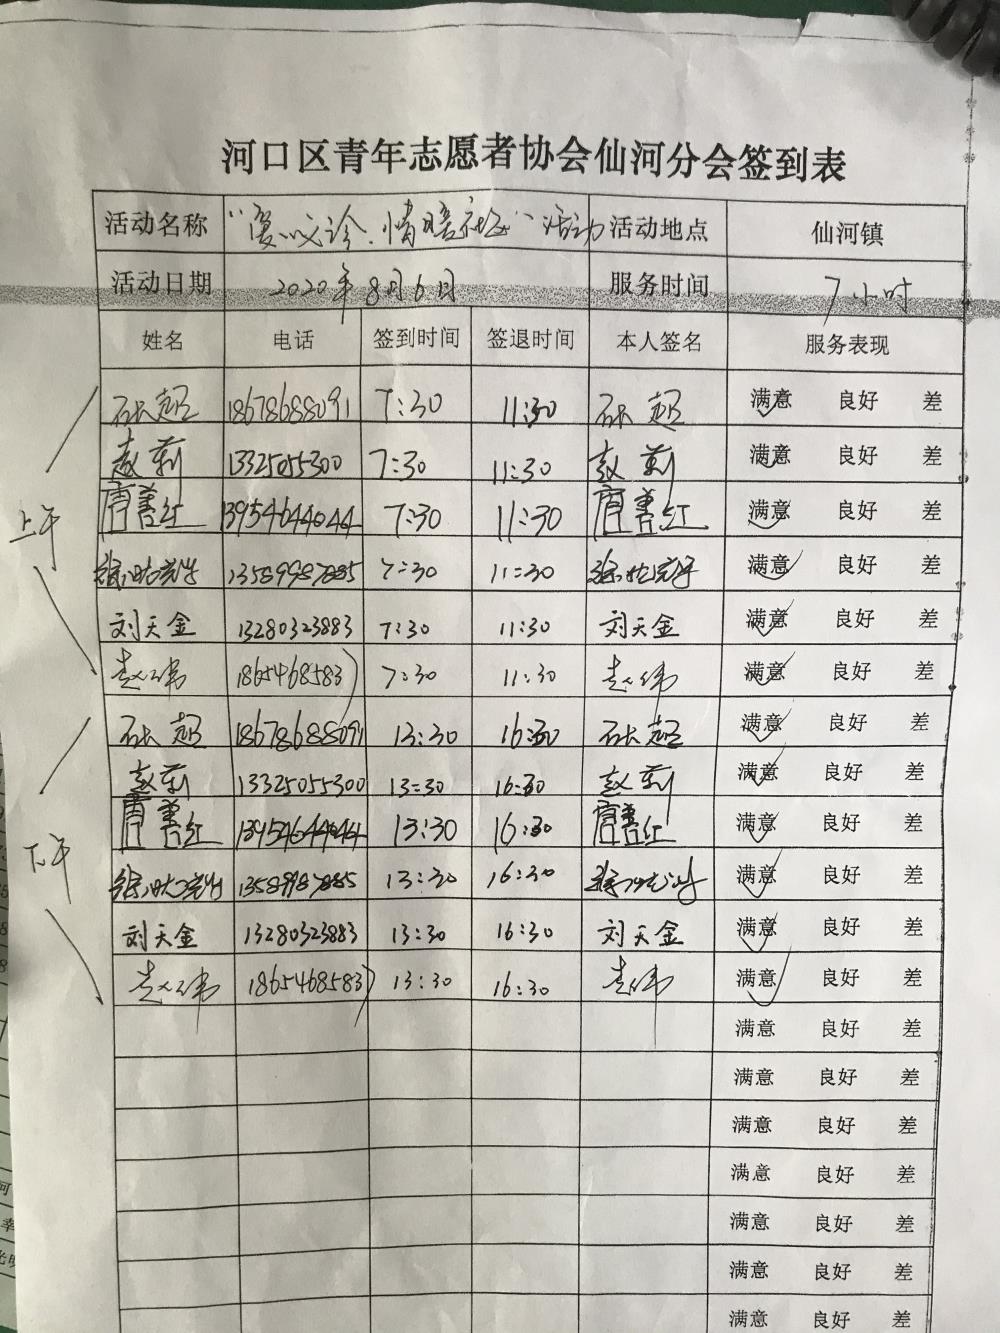 河口区青年志愿者协会仙河分会签到表
活动名称 活动 活动地点 仙河镇
活动日期 2020年8月6日 服务时间 7小时
姓名 电话 签到时间 签退时间 本人签名 服务表现
上午
超 18678688091 7:30 11:30 超 满意 良好 差
赵莉 13325055300 7:30 11:30 赵莉 满意 良好 差
唐善红 13954644044 7:30 11:30 唐善红 满意 良好 差
徐 7:30 11:30 徐 满意 良好 差
刘天金 13280323883 7:30 11:30 刘天金 满意 良好 差
赵伟 7:30 11:30 赵伟 满意 良好 差
下午
超 18678688091 13:30 16:30 超 满意 良好 差
赵莉 13325055300 13:30 16:30 赵莉 满意 良好 差
唐善红 13954644044 13:30 16:30 唐善红 满意 良好 差
徐 13:30 16:30 徐 满意 良好 差
刘天金 13280323883 13:30 16:30 刘天金 满意 良好 差
赵伟 13:30 16:30 赵伟 满意 良好 差
满意 良好 差
满意 良好 差
满意 良好 差
满意 良好 差
满意 良好 差
满意 良好 差
满意 良好 差